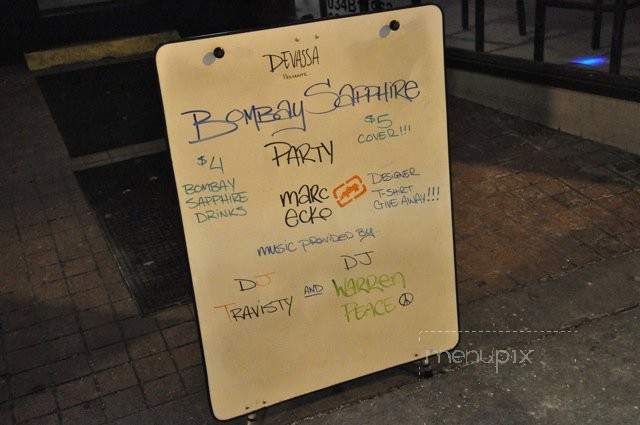 DEVASSA
PRESENTS
BOMBAY SAPPHIRE
PARTY
$5
COVER!!!
$4
BOMBAY
SAPPHIRE
DRINKS
marc
ecko
DESIGNER
T-SHIRT
GIVE AWAY!!!
MUSIC PROVIDED BY
DJ
TRAVISTY
AND
DJ
WARREN
PEACE
menupix